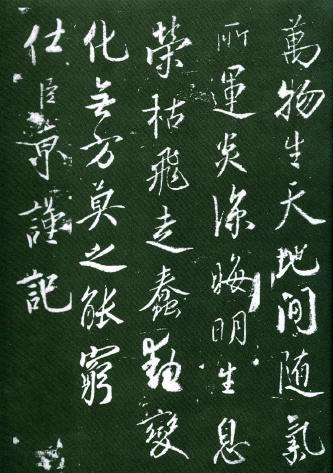 萬物生天地間随氣
所運炎涼晦明生息
榮枯飛走蠢動變
化無方莫之能窮
仕臣景謹記